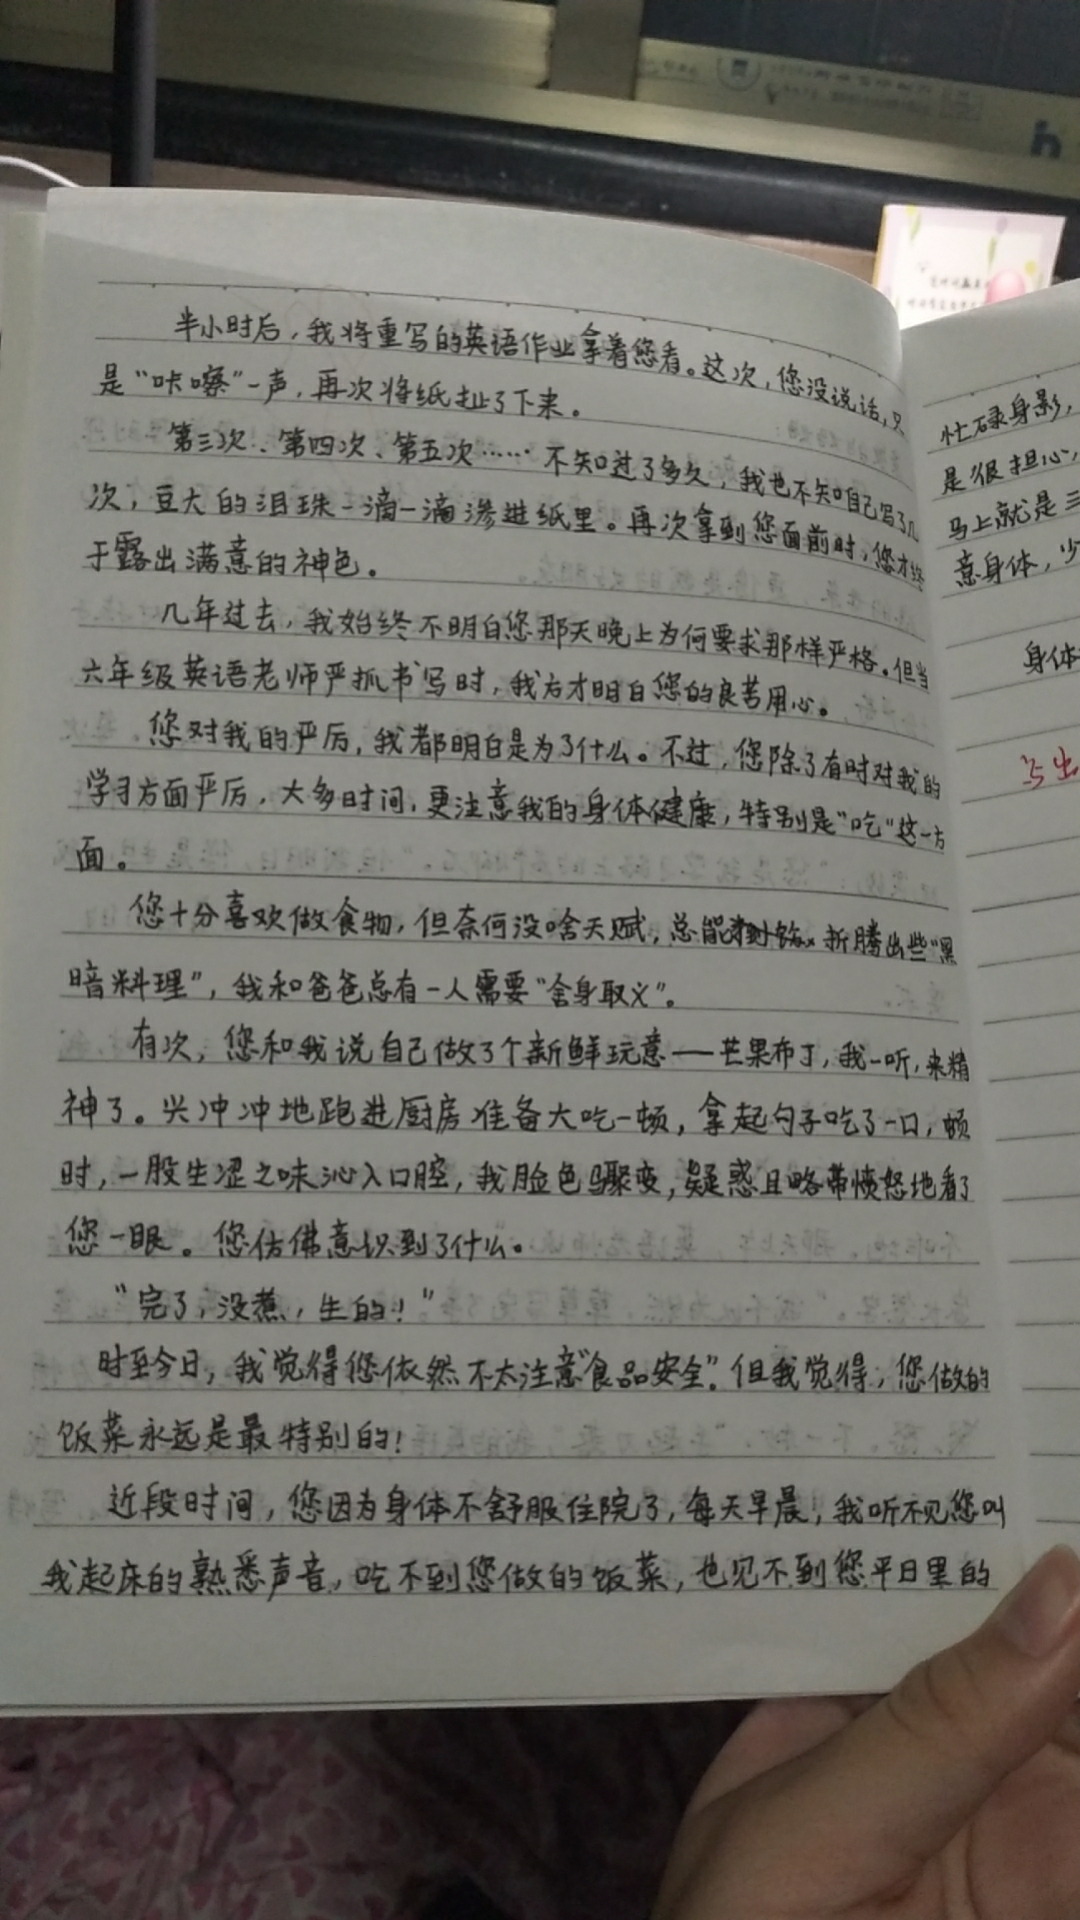 半小时后，我将重写的英语作业拿着您看。这次，您没说话，只
是“咔嚓”一声，再次将纸扯了下来。
第三次、第四次、第五次……不知过了多久，我也不知自己写了几
次，豆大的泪珠一滴一滴渗进纸里。再次拿到您面前时，您才终
于露出满意的神色。
几年过去，我始终不明白您那天晚上为何要求那样严格。但当
六年级英语老师严抓书写时，我方才明白您的良苦用心。
您对我的严厉，我都明白是为了什么。不过，您除了有时对我的
学习方面严厉，大多时间，更注意我的身体健康，特别是“吃”这一方
面。
您十分喜欢做食物，但奈何没啥天赋，总能折腾出些“黑
暗料理”，我和爸爸总有一人需要“舍身取义”。
有次，您和我说自己做了个新鲜玩意——芒果布丁，我一听，来精
神了。兴冲冲地跑进厨房准备大吃一顿，拿起勺子吃了一口，顿
时，一股生涩之味沁入口腔，我脸色骤变，疑惑且略带愤怒地看了
您一眼。您仿佛意识到了什么。
“完了，没煮，生的！”
时至今日，我觉得您依然不太注意“食品安全”。但我觉得，您做的
饭菜永远是最特别的！
近段时间，您因为身体不舒服住院了，每天早晨，我听不见您叫
我起床的熟悉声音，吃不到您做的饭菜，也见不到您平日里的
忙碌身影，
是很担心，
马上就是三
意身体，少
身体
写出